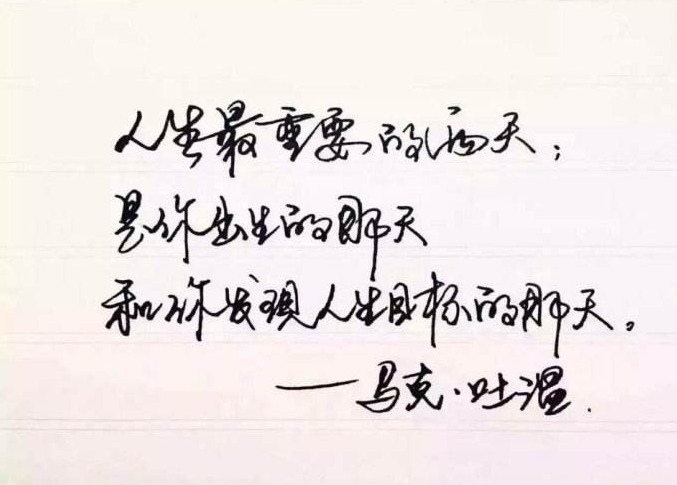 人生最重要的两天；
是你出生的那天
和你发现人生目标的那天。
——马克·吐温.